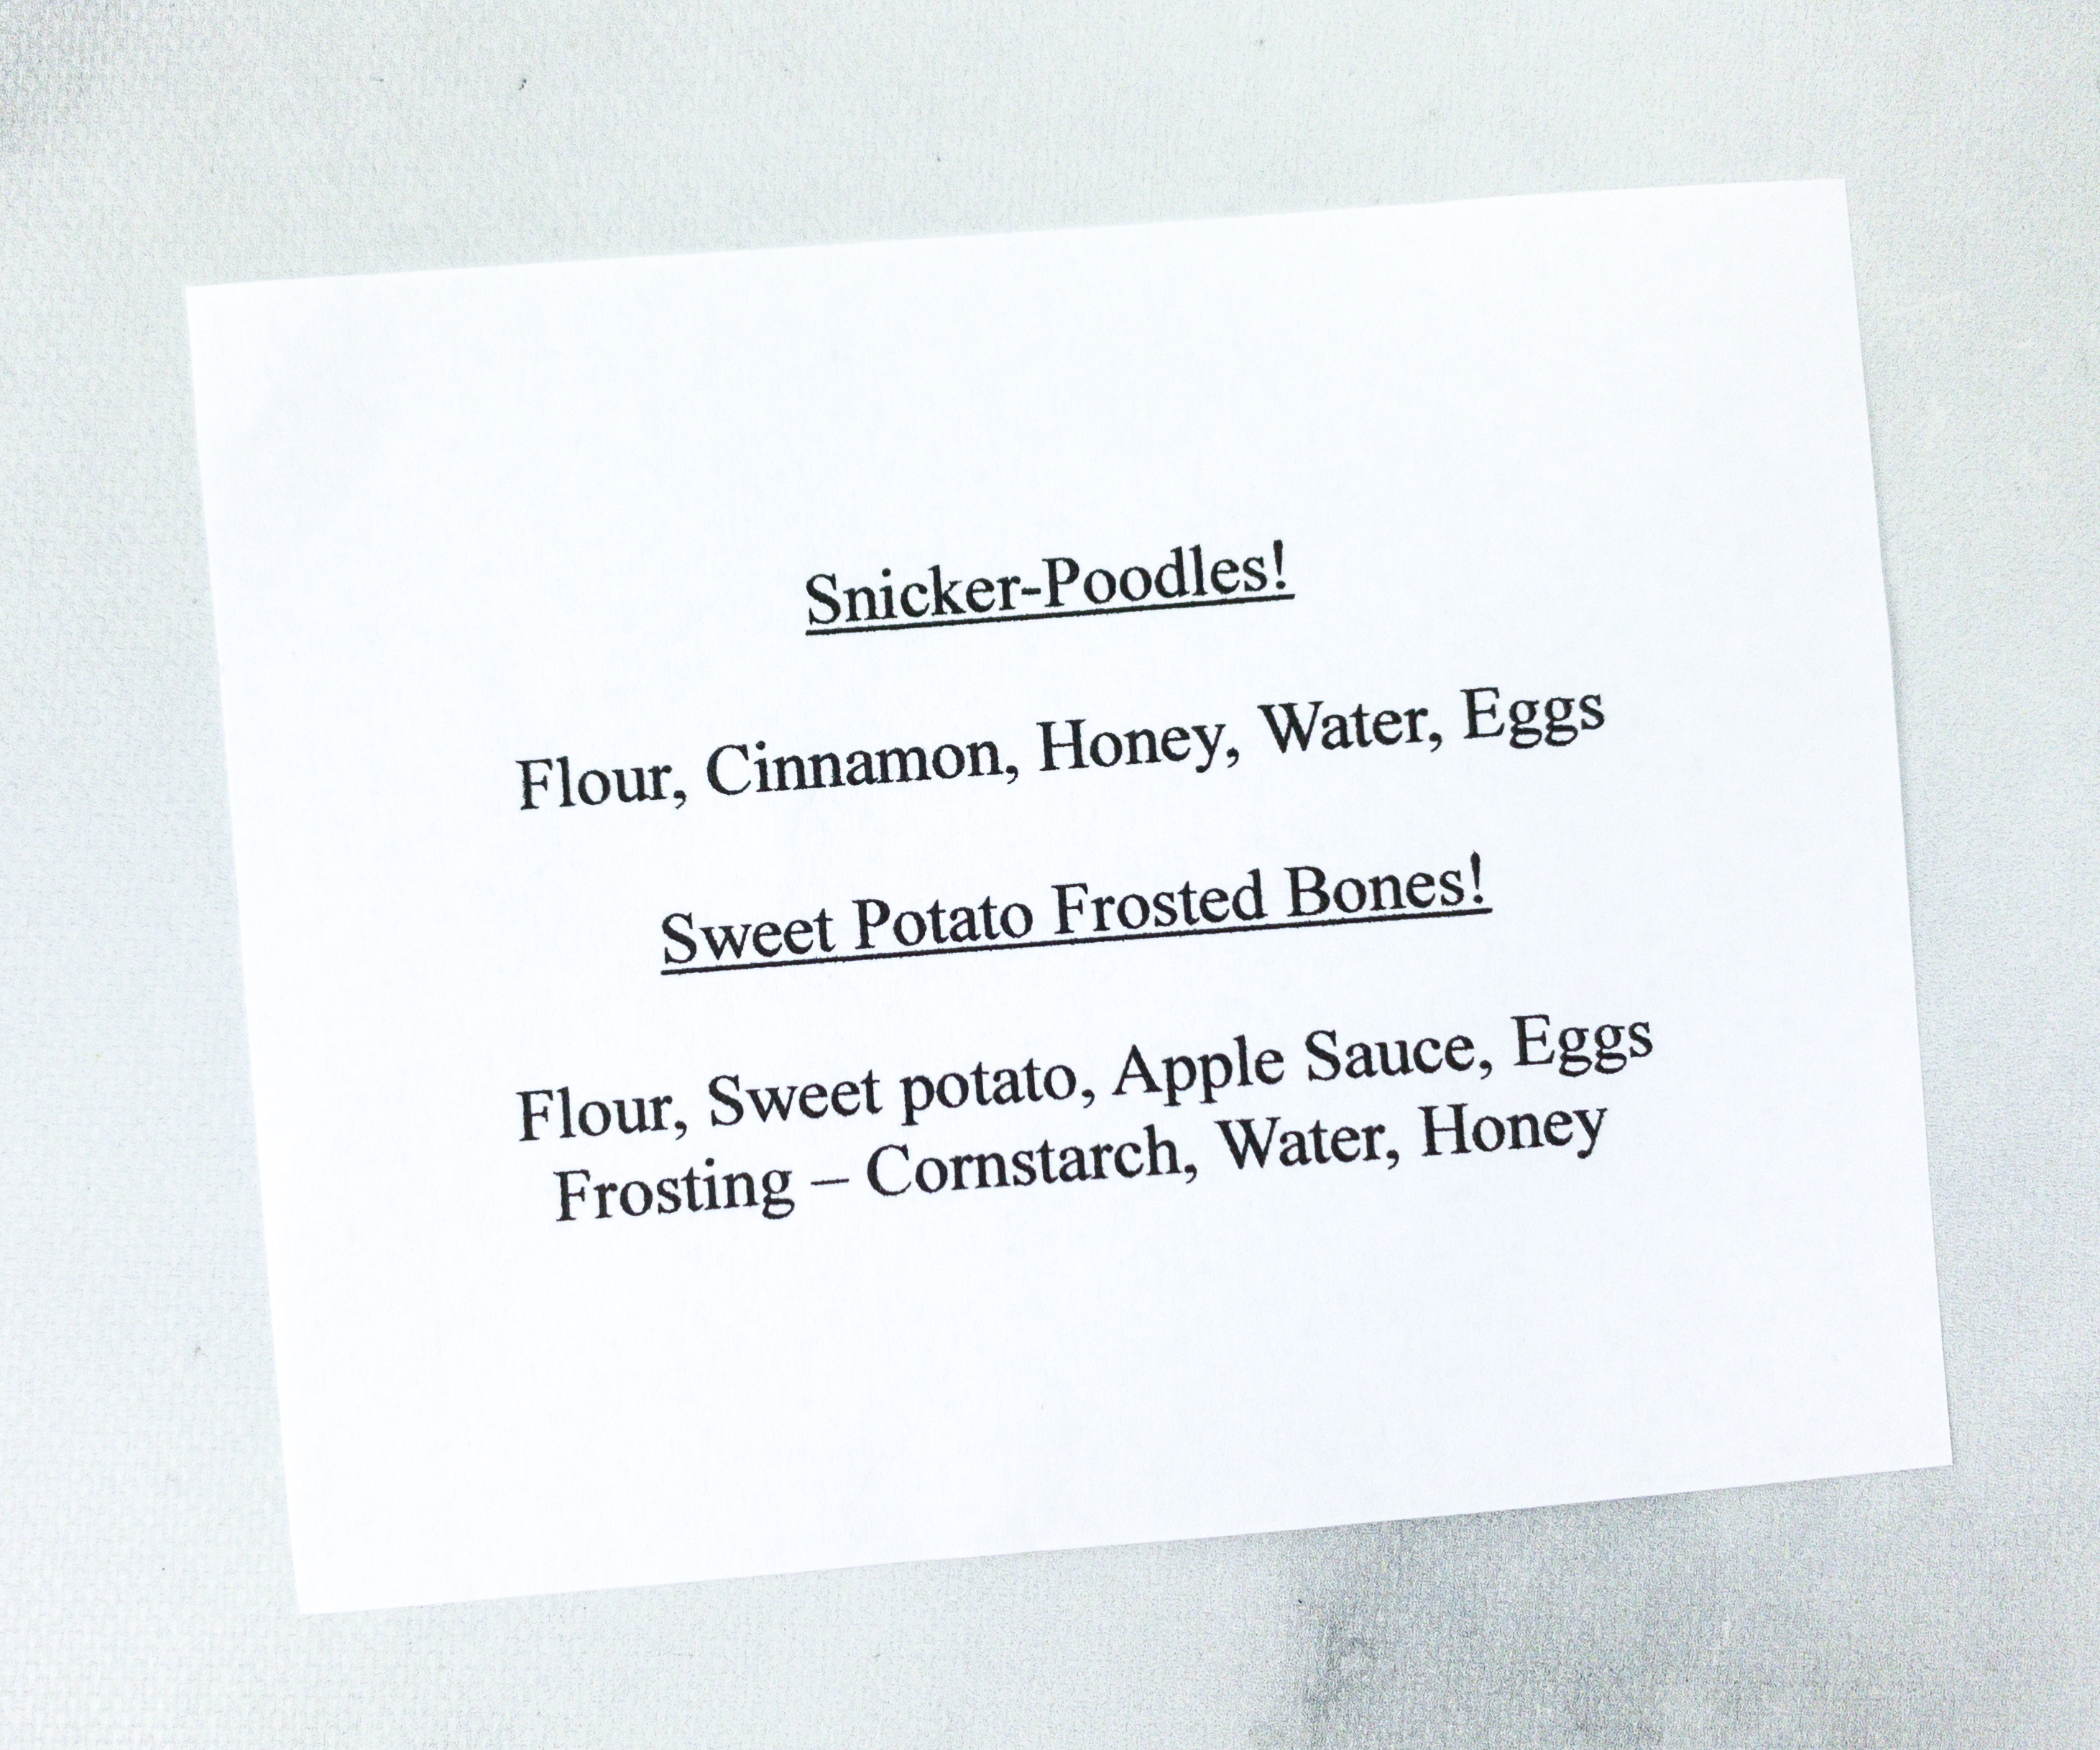 Snicker-Poodles!
Flour, Cinnamon, Honey, Water, Eggs
Sweet Potato Frosted Bones!
Flour, Sweet potato, Apple Sauce, Eggs
Frosting – Cornstarch, Water, Honey